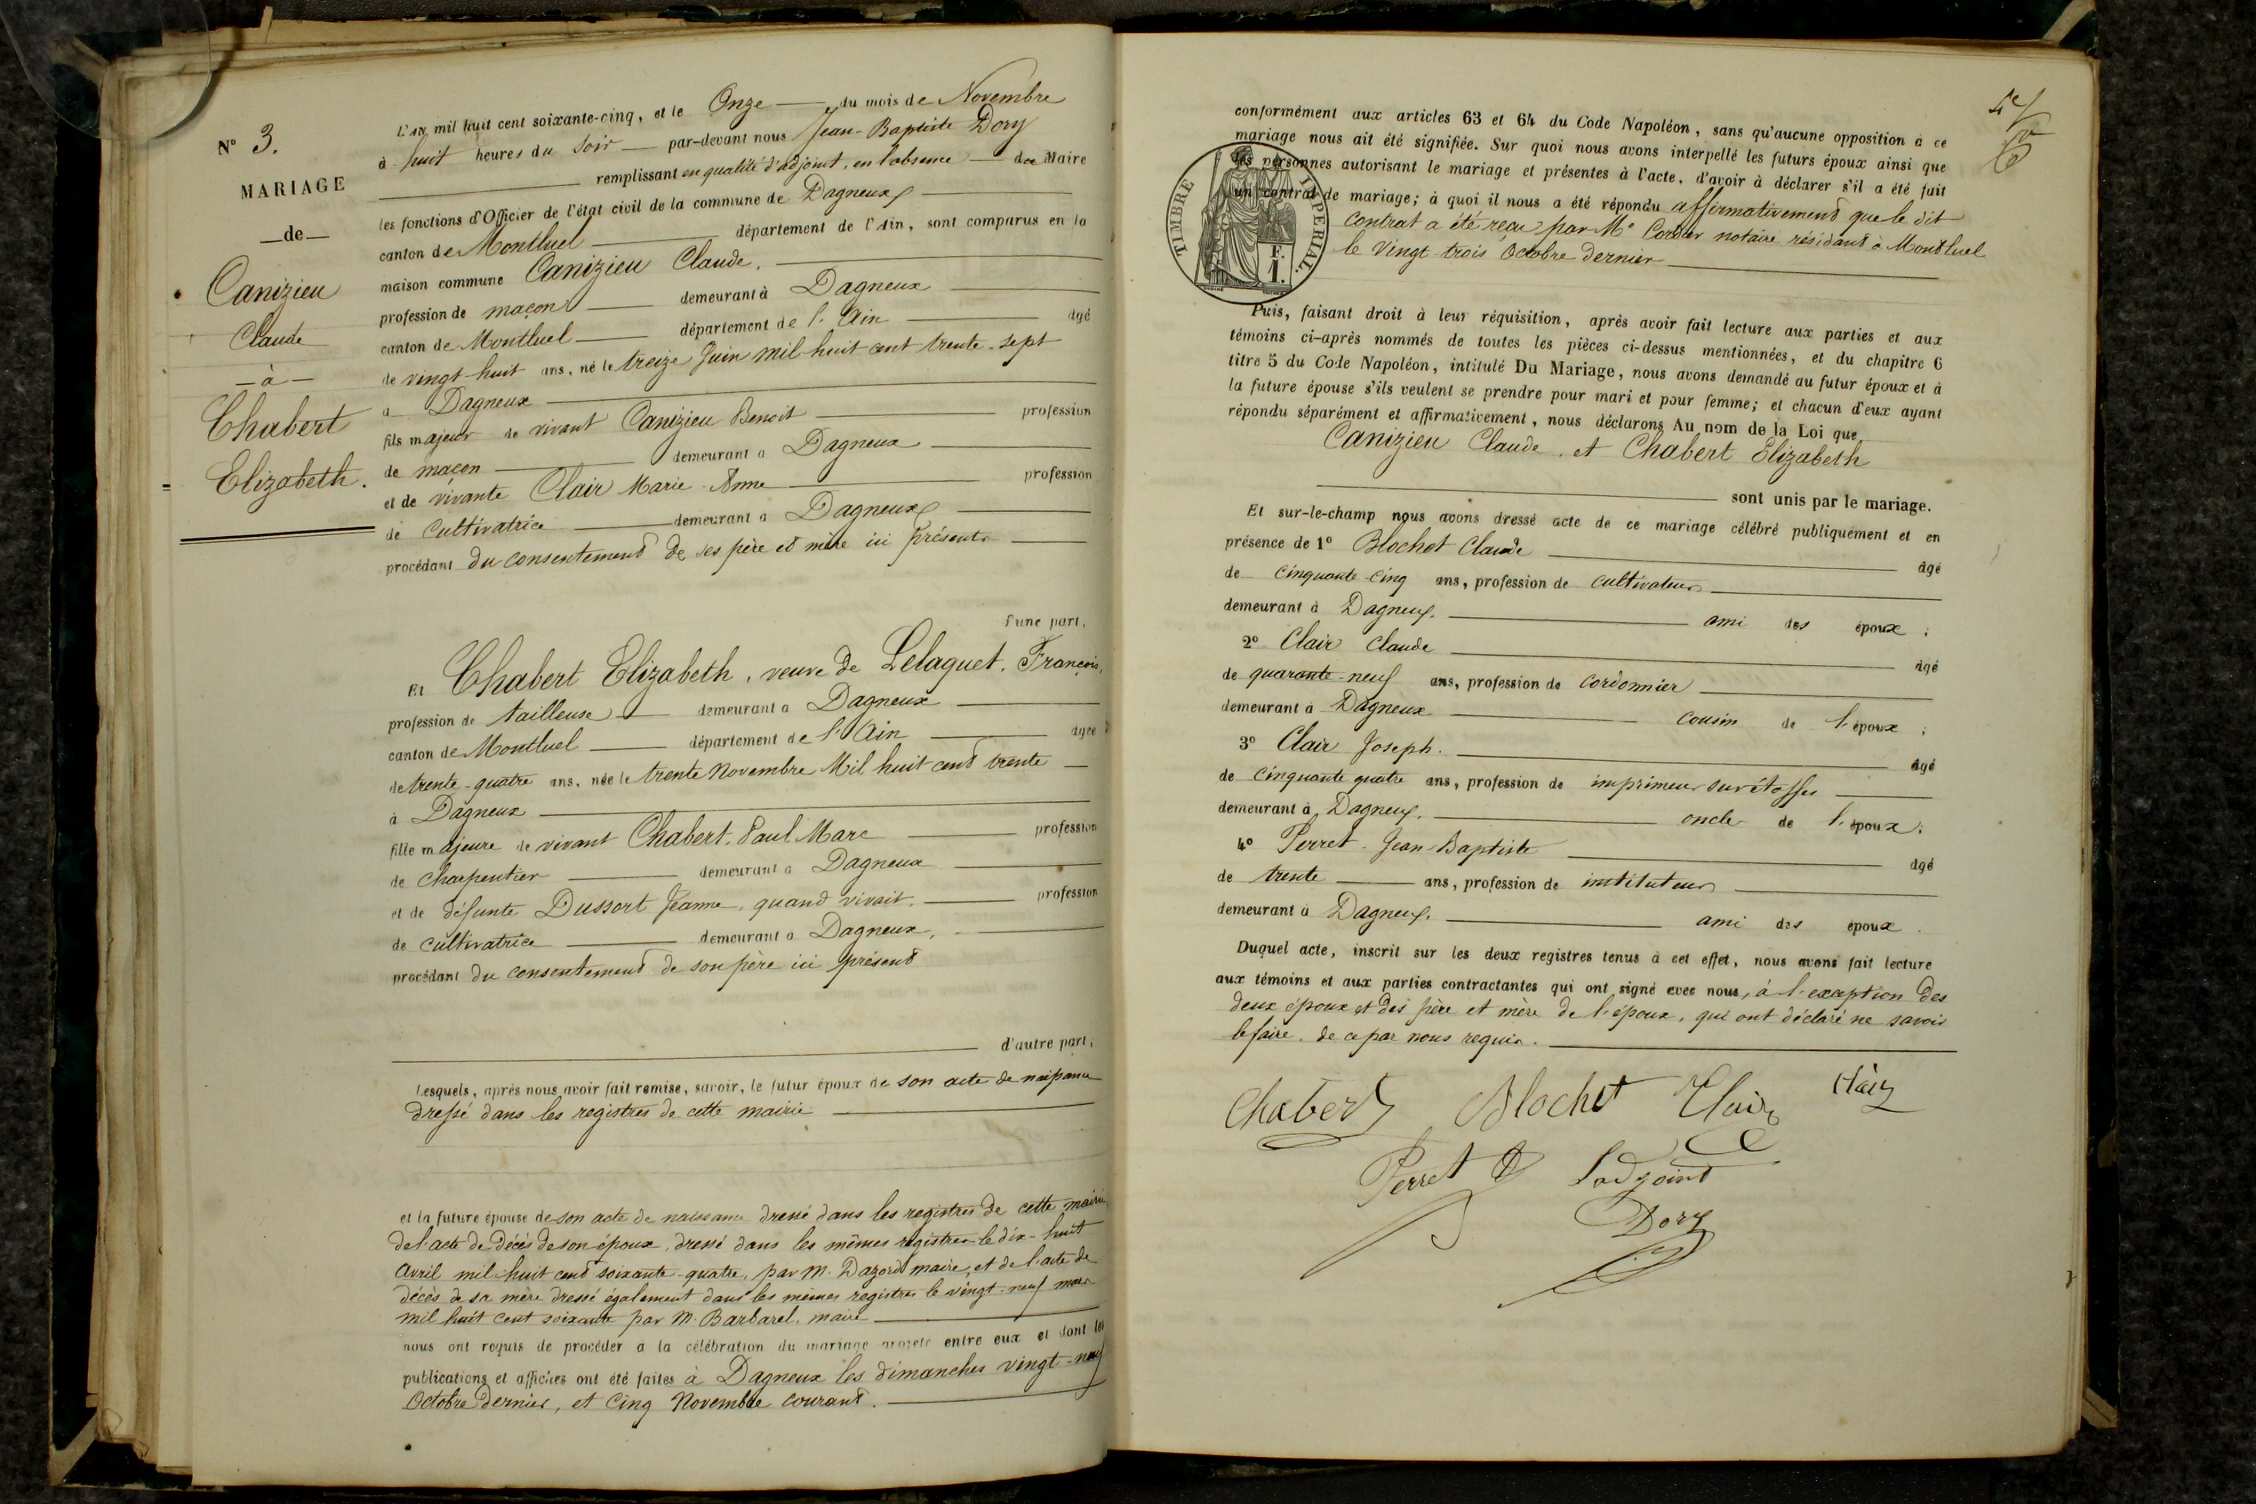 N° 3.
MARIAGE
de
Canizieu
Claude
à
Chabert
Elizabeth.
L'an mil huit cent soixante-cinq, et le Onze du mois de Novembre
à huit heures du Soir par-devant nous Jean-Baptiste Dory
remplissant en qualité d'adjoint, en l'absence du Maire
les fonctions d'Officier de l'état civil de la commune de Dagneux
canton de Montluel département de l'Ain, sont comparus en la
maison commune Canizieu Claude.
profession de maçon demeurant à Dagneux
canton de Montluel département de l'Ain âgé
de vingt-huit ans, né le treize Juin mil huit cent trente-sept
à Dagneux
fils majeur de vivant Canizieu Benoit profession
de maçon demeurant à Dagneux
et de vivante Clair Marie Anne profession
de cultivatrice demeurant à Dagneux
procédant du consentement de ses père et mère ici présents
d'une part,
Et Chabert Elizabeth, veuve de Lelaguet. François,
profession de tailleuse demeurant à Dagneux
canton de Montluel département de l'Ain âgée
de trente-quatre ans, née le trente Novembre Mil huit cent trente
à Dagneux
fille majeure de vivant Chabert. Paul Marc profession
de charpentier demeurant à Dagneux
et de défunte Dussort Jeanne, quand vivait, profession
de cultivatrice demeurant à Dagneux,
procédant du consentement de son père ici présent
d'autre part,
Lesquels, après nous avoir fait remise, savoir, le futur époux de son acte de naissance
dressé dans les registres de cette mairie
et la future épouse de son acte de naissance dressé dans les registres de cette mairie
de l'acte de décès de son époux, dressé dans les mêmes registres le dix-huit
Avril mil-huit cent soixante-quatre, par M. Dazord maire, et de l'acte de
décès de sa mère dressé également dans les mêmes registres le vingt-neuf mars
mil huit cent soixante par M. Barbarel, maire
nous ont requis de procéder à la célébration du mariage projeté entre eux et dont les
publications et affiches ont été faites à Dagneux les dimanches vingt-neuf
Octobre dernier, et cinq Novembre courant.
conformément aux articles 63 et 64 du Code Napoléon, sans qu'aucune opposition à ce
mariage nous ait été signifiée. Sur quoi nous avons interpellé les futurs époux ainsi que
les personnes autorisant le mariage et présentes à l'acte, d'avoir à déclarer s'il a été fait
un contrat de mariage; à quoi il nous a été répondu affirmativement que le dit
contrat a été reçu par Me Cordier notaire résidant à Montluel
le vingt-trois Octobre dernier
TIMBRE IMPERIAL.
F.
1.
Puis, faisant droit à leur réquisition, après avoir fait lecture aux parties et aux
témoins ci-après nommés de toutes les pièces ci-dessus mentionnées, et du chapitre 6
titre 5 du Code Napoléon, intitulé Du Mariage, nous avons demandé au futur époux et à
la future épouse s'ils veulent se prendre pour mari et pour femme; et chacun d'eux ayant
répondu séparément et affirmativement, nous déclarons Au nom de la Loi que
Canizieu Claude. et Chabert Elizabeth
sont unis par le mariage.
Et sur-le-champ nous avons dressé acte de ce mariage célébré publiquement et en
présence de 1° Blochet Claude âgé
de cinquante-cinq ans, profession de cultivateur
demeurant à Dagneux. ami des époux;
2° Clair Claude âgé
de quarante-neuf ans, profession de cordonnier
demeurant à Dagneux cousin de l'époux;
3° Clair Joseph. âgé
de cinquante quatre ans, profession de imprimeur sur étoffes
demeurant à Dagneux. oncle de l'époux;
4° Perret Jean-Baptiste âgé
de trente ans, profession de instituteur
demeurant à Dagneux. ami des époux.
Duquel acte, inscrit sur les deux registres tenus à cet effet, nous avons fait lecture
aux témoins et aux parties contractantes qui ont signé avec nous, à l'exception des
deux époux et des père et mère de l'époux, qui ont déclaré ne savoir
le faire. de ce par nous requis.
Chabert Blochet Clair Clair
Perret l'adjoint
Dory